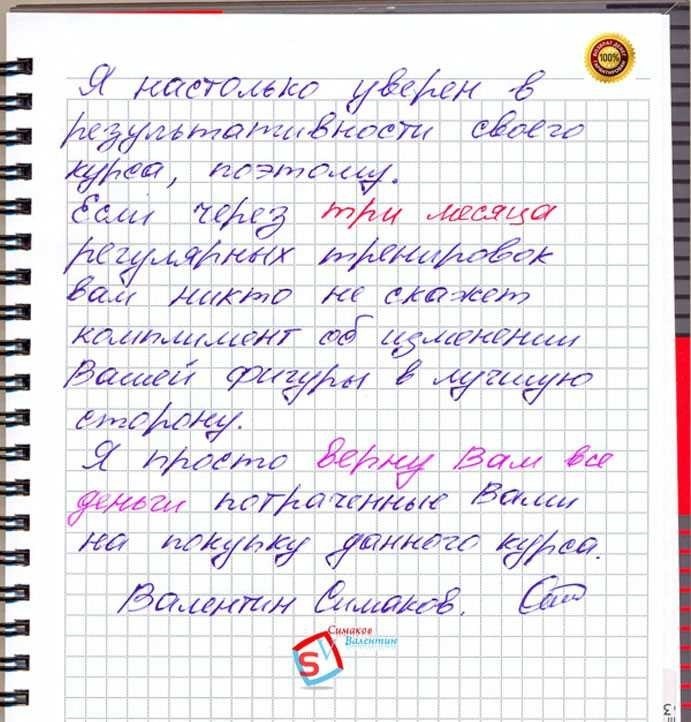 Я настолько уверен в
результативности своего
курса, поэтому.
Если через три месяца
регулярных тренировок
вам никто не скажет
комплимент об изменении
Вашей фигуры в лучшую
сторону.
Я просто верну Вам все
деньги потраченные Вами
на покупку данного курса.
Валентин Симаков.
Симаков
Валентин
SV
ВОЗВРАТ ДЕНЕГ
100%